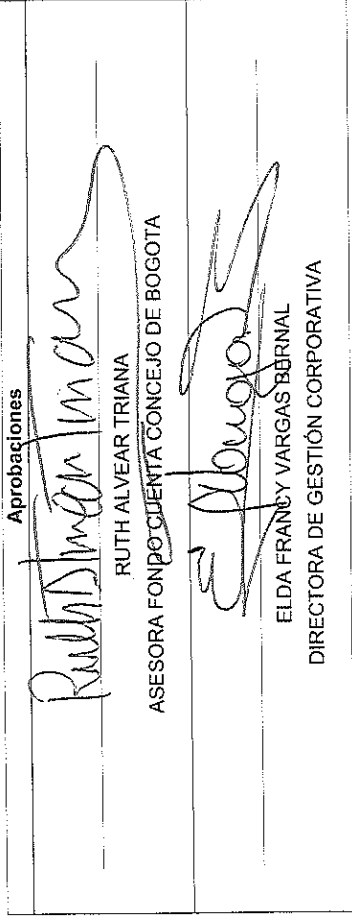 Aprobaciones
RUTH ALVEAR TRIANA
ASESORA FONDO CUENTA CONCEJO DE BOGOTA
ELDA FRANCY VARGAS BERNAL
DIRECTORA DE GESTIÓN CORPORATIVA